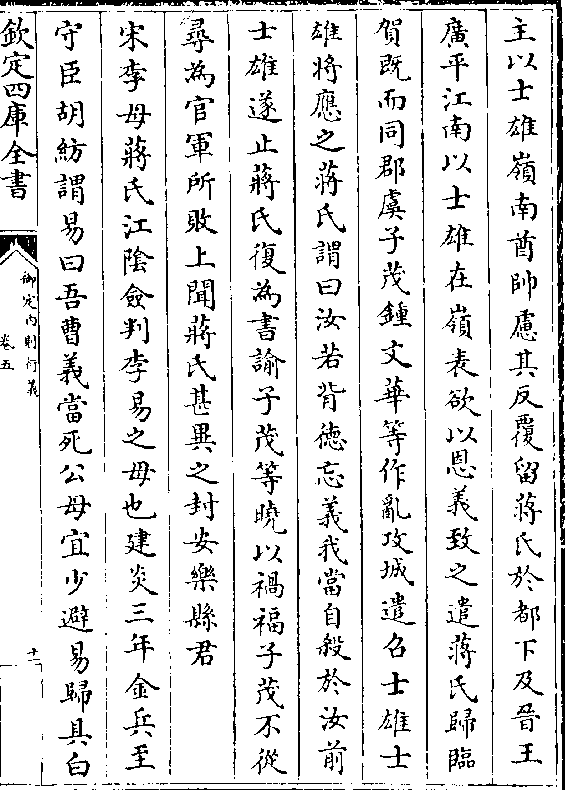 主以士雄嶺南酋帥慮其反覆留蔣氏於都下及晉王
廣平江南以士雄在嶺表欲以恩義致之遣蔣氏歸臨
賀既而同郡虞子茂鍾文華等作亂攻城遣召士雄士
雄將應之蔣氏謂曰汝若背德忘義我當自殺於汝前
士雄遂止蔣氏復為書諭子茂等曉以禍福子茂不從
尋為官軍所敗上聞蔣氏甚異之封安樂縣君
宋李母蔣氏江陰僉判李易之母也建炎三年金兵至
守臣胡紡謂易曰吾曹義當死公母宜少避易歸具白
欽定四庫全書
御定內則衍義
卷五
十一